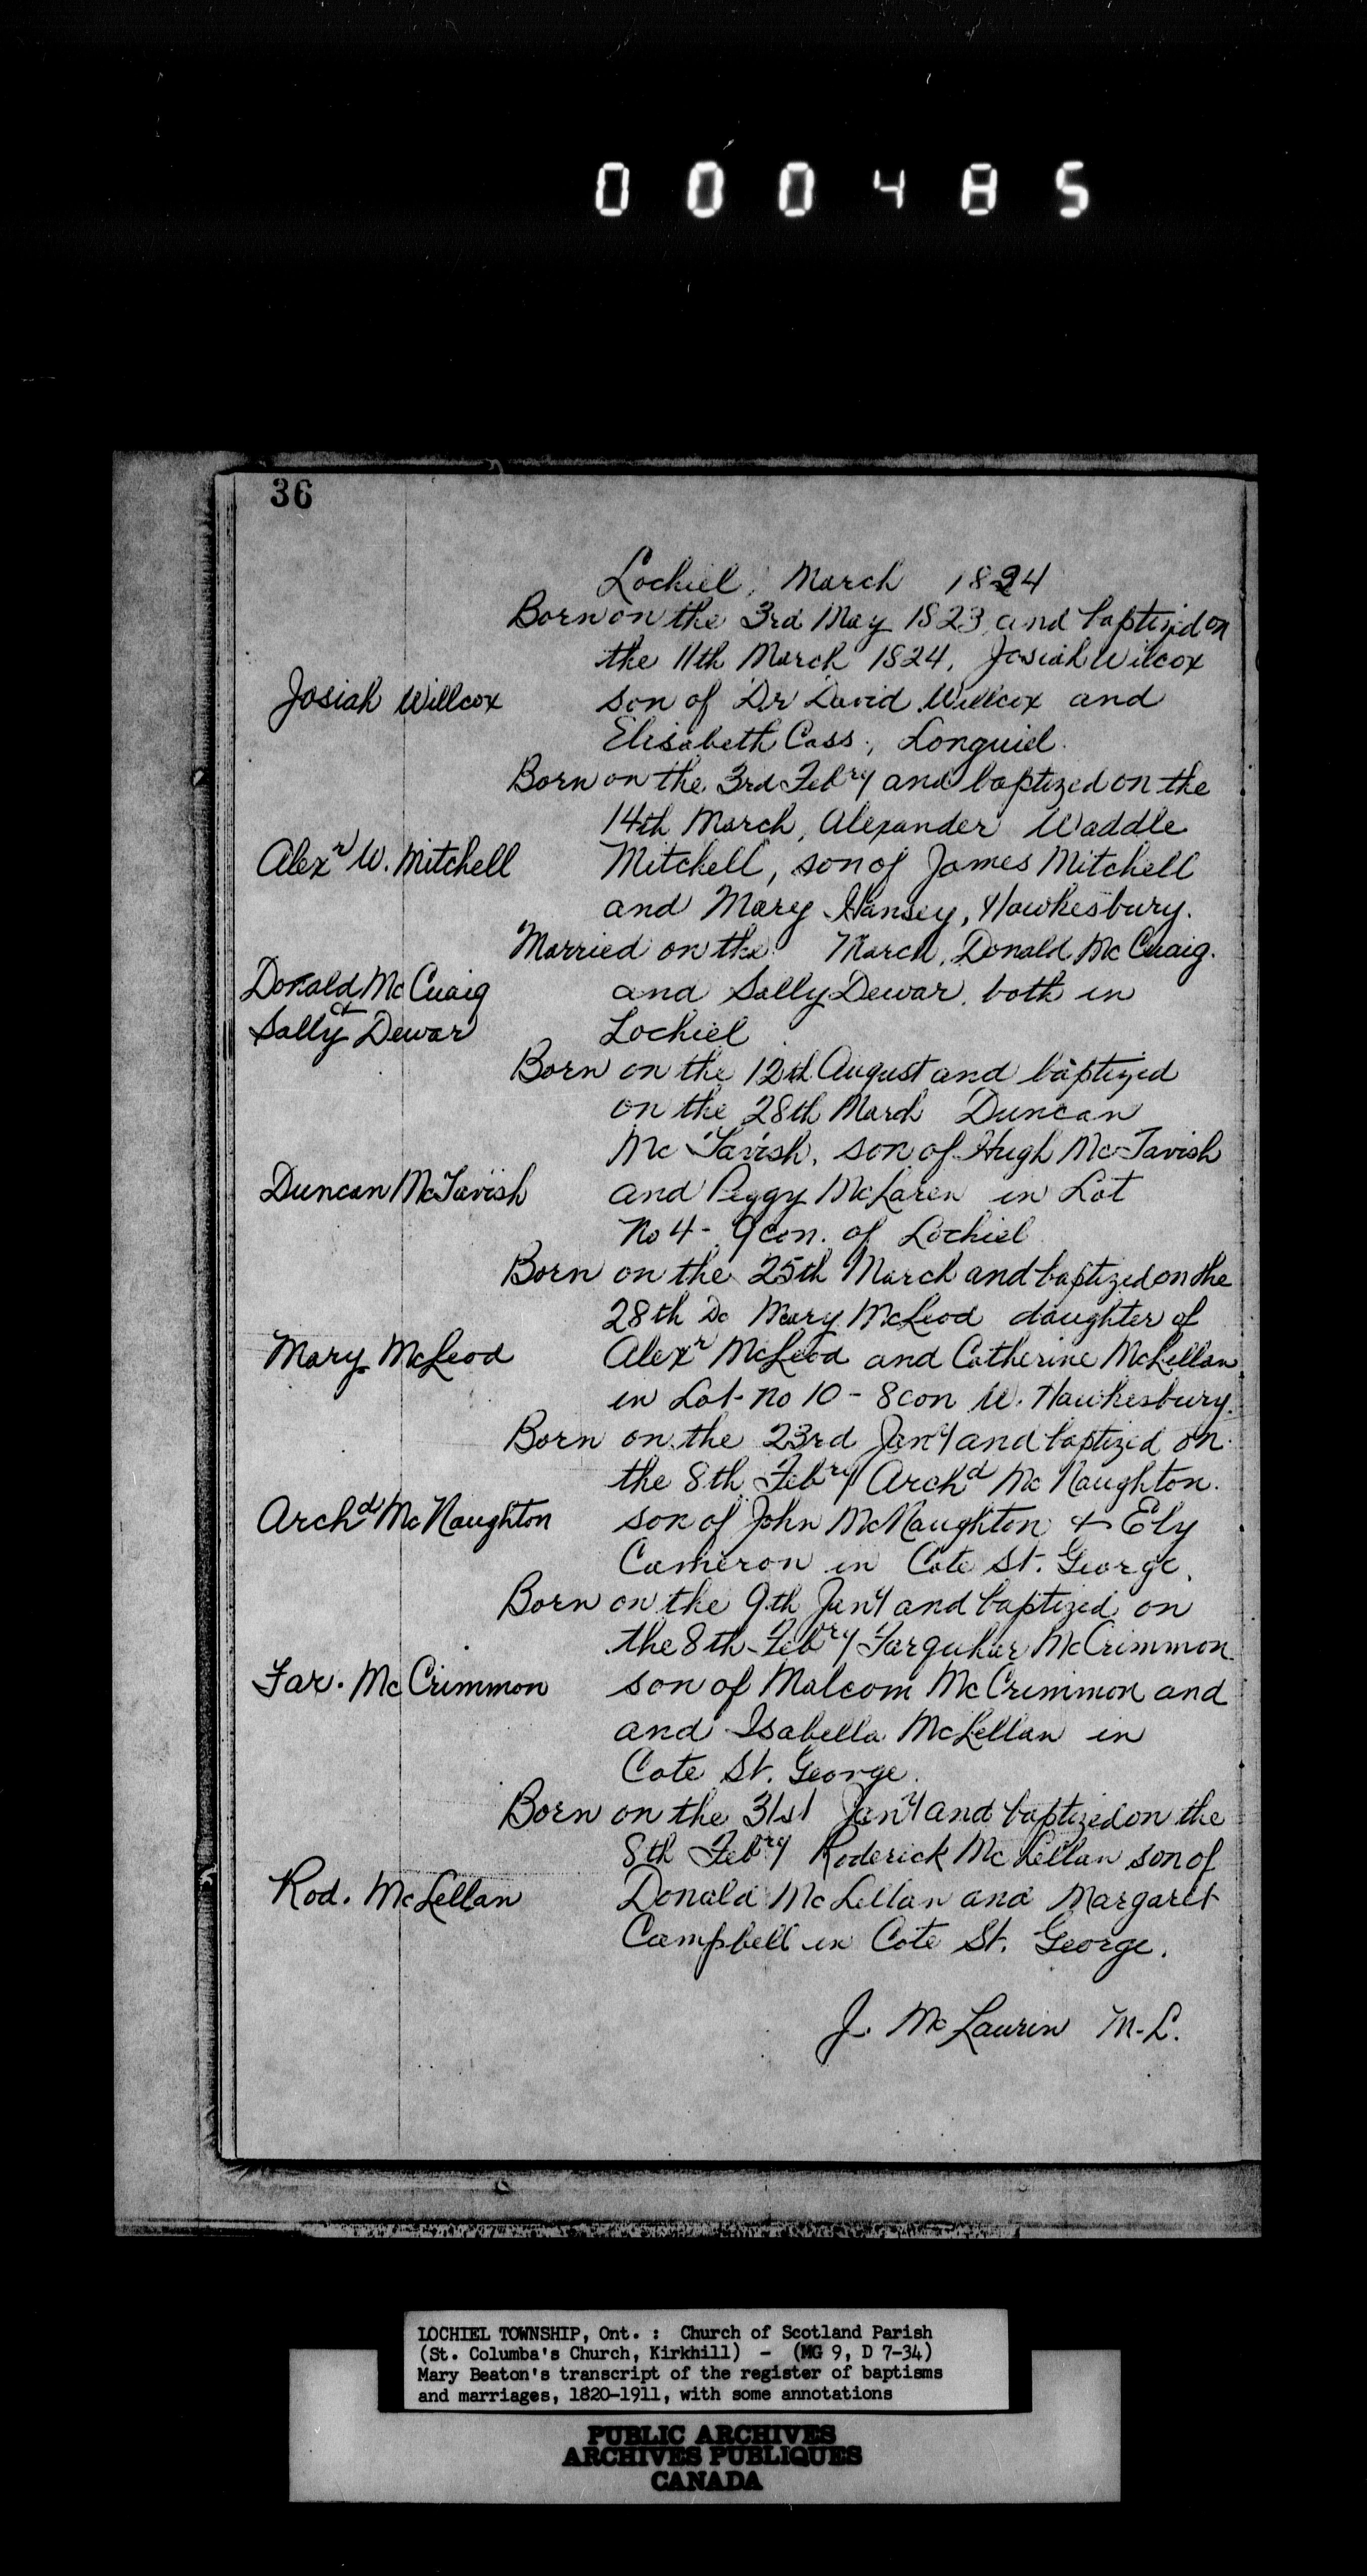 000485
36
Lochiel, March 1824
Born on the 3rd May 1823 and baptized on
the 11th March 1824, Josiah Wilcox
Josiah Willcox son of Dr David Willcox and
Elisabeth Cass, Longuiel.
Born on the 3rd Febry and baptized on the
14th March, Alexander Waddle
Alexr W. Mitchell Mitchell, son of James Mitchell
and Mary Hansey, Hawkesbury.
Married on the March, Donald McCuaig.
Donald McCuaig and Sally Dewar, both in
&
Sally Dewar Lochiel
Born on the 12th August and baptized
on the 28th March Duncan
McTavish, son of Hugh McTavish
Duncan McTavish and Peggy McLaren in Lot
No 4 - 9 con. of Lochiel
Born on the 25th March and baptized on the
28th Do Mary McLeod daughter of
Mary McLeod Alexr McLeod and Catherine McLellan
in Lot no 10 - 8 con W. Hawkesbury.
Born on the 23rd Jany and baptized on
the 8th Febry Archd McNaughton.
Archd McNaughton son of John McNaughton & Ely
Cameron in Cote St. George.
Born on the 9th Jany and baptized on
the 8th Febry Farquhar McCrimmon
Far. McCrimmon son of Malcom McCrimmon and
and Isabella McLellan in
Cote St. George.
Born on the 31st Jany and baptized on the
8th Febry Roderick McLellan son of
Rod. McLellan Donald McLellan and Margaret
Campbell in Cote St. George.
J. McLaurin M.L.
LOCHIEL TOWNSHIP, Ont. : Church of Scotland Parish
(St. Columba's Church, Kirkhill) - (MG 9, D 7-34)
Mary Beaton's transcript of the register of baptisms
and marriages, 1820-1911, with some annotations
PUBLIC ARCHIVES
ARCHIVES PUBLIQUES
CANADA